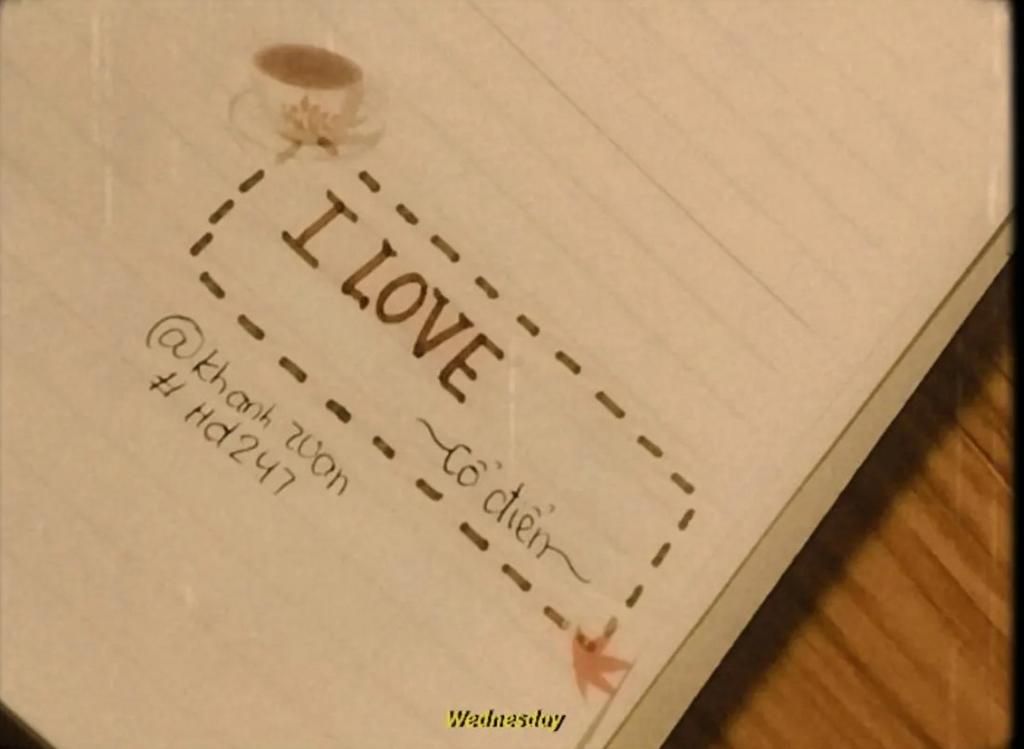 I LOVE
~Cổ điển~
@Khanh wan
# Hd247
Wednesday